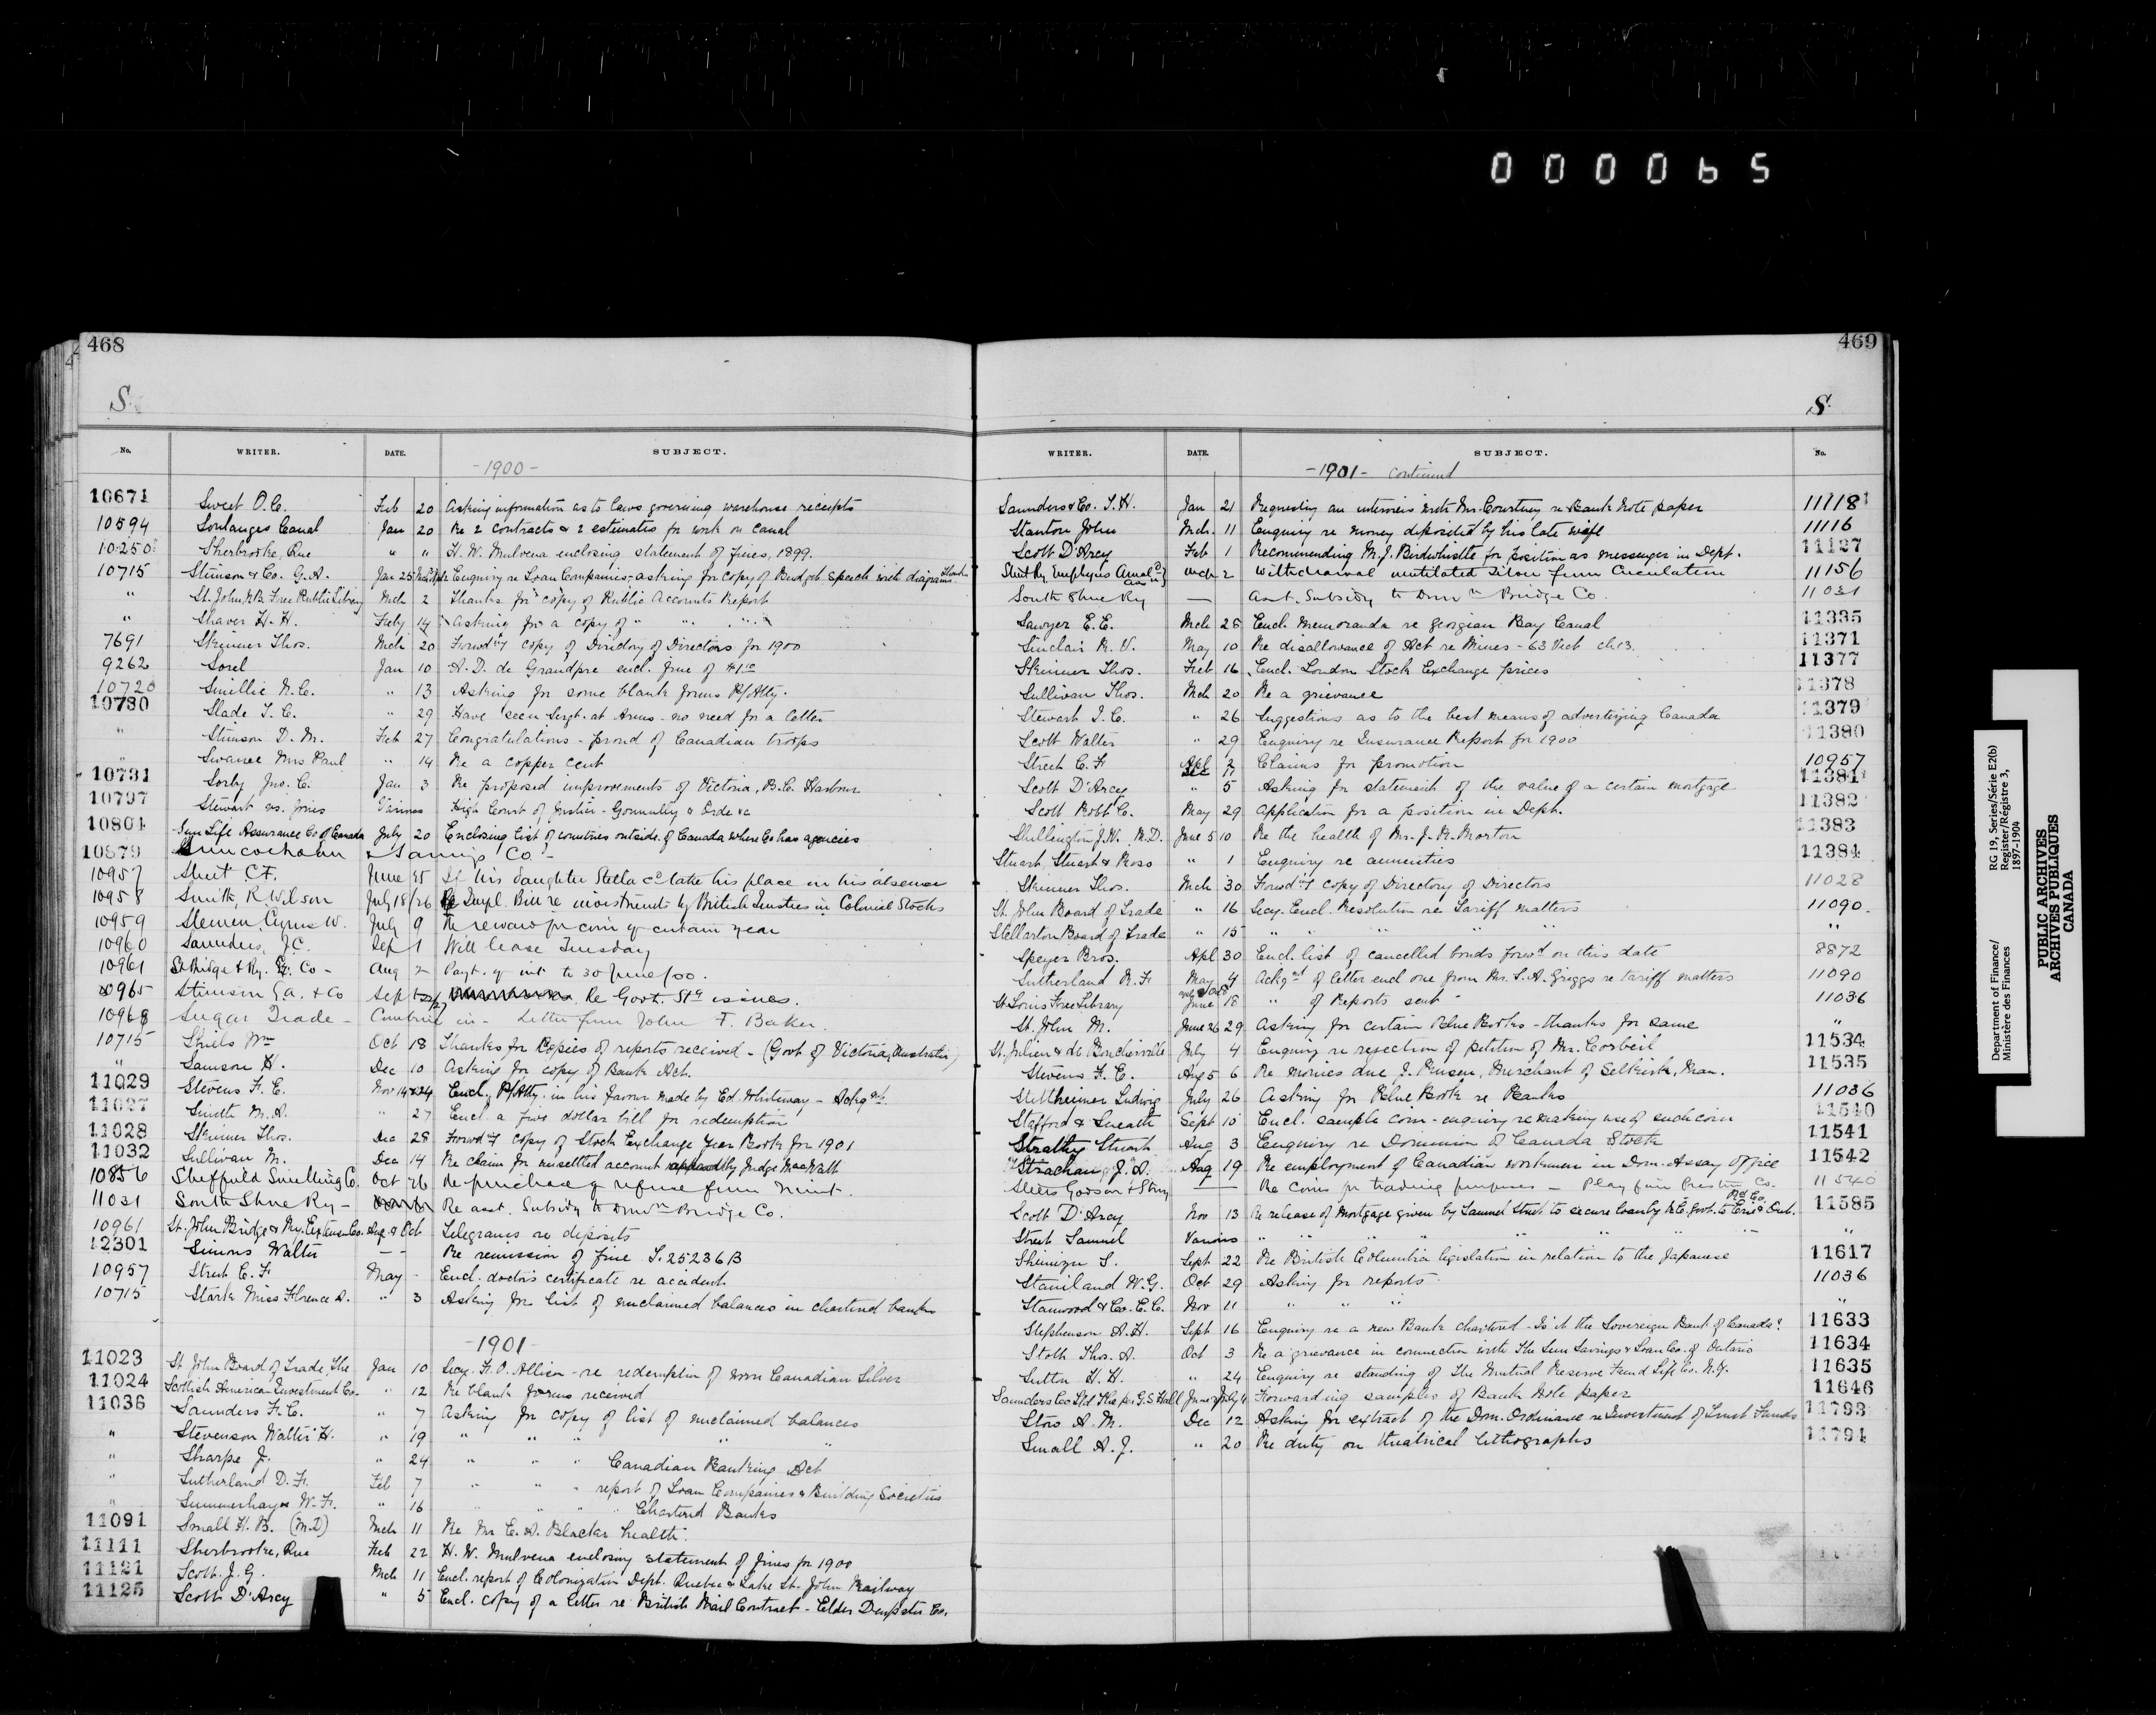 000065
468
S.
No. WRITER. DATE. SUBJECT.
-1900-
10671 Sweet O.C. Feb 20 Asking information as to laws governing warehouse receipts
10594 Soulanges Canal Jan 20 Re 2 contracts & 2 estimates for work on canal
10250 Sherbrooke, Que " " H. W. Mulvena enclosing statement of fines, 1899.
10715 Stimson & Co. G.A. Jan 25 Enquiry re Loan Companies, asking for copy of Budget Speech with diagrams. Thanks
" St. John, N.B. Free Public Library Mch 2 Thanks for copy of Public Accounts Report
" Shaver H.H. Feby 14 Asking for a copy of " " "
7691 Skinner Thos. Mch 20 Forwdg copy of Directory of Directors for 1900
9262 Sorel Jan 10 A. D. de Grandpre encl. fine of $1.00
10720 Smillie N.C. " 13 Asking for some blank forms P/Atty.
10730 Slade T. C. " 29 Have seen Sergt. at Arms - no need for a letter
" Stimson D. M. Feb 27 Congratulations - proud of Canadian troops
" Swance Mrs Paul " 14 Re a copper cent
10731 Sorby Jno. C. Jan 3 Re proposed improvements of Victoria, B.C. Harbour
10797 Stewart vs. Jones Various High Court of Justice - Gormully & Orde &c
10801 Sun Life Assurance Co of Canada July 20 Enclosing list of countries outside of Canada where Co has agencies
10879 & Savings Co -
10957 Street C.F. June 25 If his daughter Stella cd take his place in his absence
10958 Smith R. Wilson July 18/26 Re Impl. Bill re investments by British Trustees in Colonial Stocks
10959 Slemen, Cyrus W. July 9 Re reward for coin of certain year
10960 Saunders, J.C. Sep 1 Will lease Tuesday
10961 St Bridge & Ry. Ex. Co - Aug 2 Payt. of int to 30 June/00.
10965 Stimson G.A. & Co Sept Re Govt. Stg issues.
10968 Sugar Trade - Combine in - Letter from John F. Baker.
10715 Shiels Wm Oct 18 Thanks for copies of reports received - (Govt of Victoria, Australia)
" Samson H. Dec 10 Asking for copy of Bank Act.
11029 Stevens F. C. Nov 14 & 24 Encl. P/Atty. in his favour made by Ed. Whiteway - Ackgmt.
11027 Smith M. A. " 27 Encl. a five dollar bill for redemption
11028 Skinner Thos. Dec 28 Forwdg copy of Stock Exchange Year Book for 1901
11032 Sullivan M. Dec 14 Re claim for unsettled account by Judge MacWatt
10856 Sheffield Smelting Co. Oct 26 Re purchase of refuse from mint.
11031 South Shore Ry - Re asst. Subsidy to Domn Bridge Co.
10961 St. John Bridge & Ry. Extension Co. Aug. & Oct Telegrams re deposits
12301 Simons Walter -- Re remission of fine S.25236B
10957 Street C. F. May - Encl. doctor's certificate re accident.
10715 Stark Miss Florence A. " 3 Asking for list of unclaimed balances in chartered banks
-1901-
11023 St. John Board of Trade, The Jan 10 Secy. F. O. Allison - re redemption of worn Canadian Silver
11024 Scottish American Investment Co. " 12 Re blank forms received
11036 Saunders F. C. " 7 Asking for copy of list of unclaimed balances
" Stevenson Walter H. " 19 " " " " "
" Sharpe J. " 24 " " " Canadian Banking Act
" Sutherland D. F. Feb 7 " " " report of Loan Companies & Building Societies
" Summerhayes W. F. " 16 " " " Chartered Banks
11091 Small H. B. (M.D) Mch 11 Re Mr. E. A. Blacker health.
11111 Sherbrooke, Que Feb 22 H. W. Mulvena enclosing statement of fines for 1900
11121 Scott J. G. Mch 11 Encl. report of Colonization Dept. Quebec & Lake St. John Railway
11125 Scott D'Arcy " 5 Encl. copy of a letter re British Mail Contract - Elder Dempster Co.
469
S.
WRITER. DATE. SUBJECT. No.
-1901- continued
Saunders & Co. T.H. Jan 21 Requesting an interview with Mr. Courtney re Bank Note paper 11118
Stanton John Mch. 11 Enquiry re money deposited by his late wife 11116
Scott D'Arcy Feb 1 Recommending M. J. Birdwhistle for position as messenger in Dept. 11127
Street Ry Employees Amal'd Ass'n Mch 2 Withdrawal mutilated silver from Circulation 11156
South Shore Ry — Asst. Subsidy to Domn Bridge Co. 11031
Sawyer E. E. Mch 28 Encl. Memoranda re Georgian Bay Canal 11335
Sinclair R. V. May 10 Re disallowance of Act re Mines - 63 Vict ch 13. 11371
Skinner Thos. Feb 16 Encl. London Stock Exchange prices 11377
Sullivan Thos. Mch 20 Re a grievance 11378
Stewart J. C. " 26 Suggestions as to the best means of advertizing Canada 11379
Scott Walter " 29 Enquiry re Insurance Report for 1900 11380
Street C. F. Apl 2 Dec 17 Claims for promotion 10957
Scott D'Arcy " 5 Asking for statement of the value of a certain mortgage 11381
Scott Robt C. May 29 Application for a position in Dept. 11382
Shillington J.W. M.D. June 5 10 Re the health of Mr. J. R. Morton 11383
Stuart, Stuart & Ross " 1 Enquiry re annuities 11384
Skinner Thos. Mch 30 Forwdg copy of Directory of Directors 11028
St. John Board of Trade " 16 Secy. Encl. Resolution re Tariff matters 11090
Stellarton Board of Trade " 15 " " " " " "
Speyer Bros. Apl 30 Encl. list of cancelled bonds forwd on this date 8872
Sutherland R. F. May 4 Ackgmt of letter encl one from Mr. S. A. Griggs re tariff matters 11090
St. Louis Free Library June 18 " of Reports sent 11036
St. John M. June 26 29 Asking for certain Blue Books - thanks for same "
St. Julien & de Boucherville July 4 Enquiry re rejection of petition of Mr. Corbeil 11534
Stevens F. C. Aug 5 6 Re monies due J. Rusen, Merchant of Selkirk, Man. 11535
Stettheimer Ludwig July 26 Asking for Blue Book re Banks 11036
Stafford & Sept 10 Encl. sample coin - enquiry re making use of such coin 11540
Strathy Stuart Aug 3 Enquiry re Dominion of Canada Stock 11541
Strachan J. A. Aug 19 Re employment of Canadian workmen in Dom. Assay Office 11542
Steers Godson & — Re Coins for trading purposes - Play fair Preston Co. 11540
Scott D'Arcy Nov 13 Re release of Mortgage given by Samuel Street to secure loan by U.C. Govt. to Erie & Ont. Rd Co. 11585
Street Samuel Various " " " " " " "
Shimizu S. Sept 22 Re British Columbia legislation in relation to the Japanese 11617
Staniland W.G. Oct 29 Asking for reports 11036
Stanwood & Co. E. C. Nov 11 " " " "
Stephenson A.H. Sept 16 Enquiry re a new Bank chartered - Is it the Sovereign Bank of Canada? 11633
Stott Thos. A. Oct 3 Re a grievance in connection with The Sun Savings & Loan Co. of Ontario 11634
Sutton H. H. " 24 Enquiry re standing of The Mutual Reserve Fund Life Co. N.Y. 11635
Saunders Co Ltd The per G.S. Hall June July 4 Forwarding samples of Bank Note paper 11646
Stors A. M. Dec 12 Asking for extract of the Dom. Ordinance re Investment of Trust Funds 11793
Small A. J. " 20 Re duty on theatrical lithographs 11794
Department of Finance/
Ministère des Finances
RG 19, Series/Série E2(b)
Register/Régistre 3,
1897-1904
PUBLIC ARCHIVES
ARCHIVES PUBLIQUES
CANADA